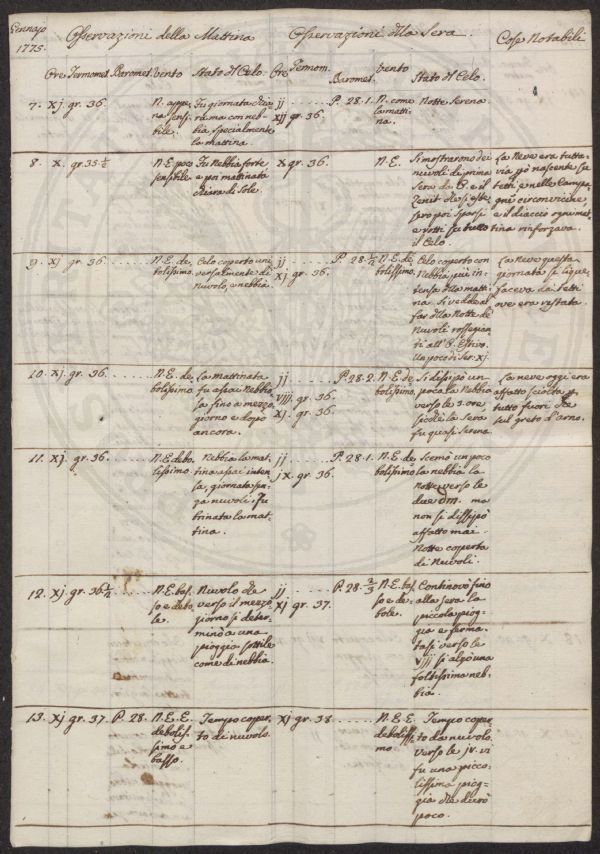 Gennajo
1775.
Osservazioni della Mattina
Osservazioni dlla Sera.
Cose Notabili
Ore Termomet. Baromet. Vento Stato dl Celo.
Ore Termom. Baromet. vento Stato dl Celo.
7. Xj gr. 36.
N. appe,
na sensi,
bile.
Fu giornata chia
ra ma con neb,
bia, specialmente
la mattina.
jj P. 28.1.
xjj gr. 36.
N. come
la matti,
na.
Notte Serena.
8. X. gr. 35 ½
N.E. poco
sensibile
Fu Nebbia forte
e poi mattinata
chiara di Sole.
X gr. 36.
N.E.
Si mostrarono dei
nuvoli di prima
Sera da O. e il
Zenit che si este,
sero poi sparsi
e rotti su tutto
il Celo.
La Neve era tutta,
via pò nascente su
tetti, e nelle Campa,
gne circonvicine,
e il diaccio ogni mat,
tina rinforzava.
9. Xj gr. 36.
N.E. de,
bolissimo.
Celo coperto uni
versalmente di
nuvolo, e nebbia.
jj P. 28 ½
Xj gr. 36.
N.E. de
bolissimo.
Celo coperto con
Nebbia più in,
tensa dlla matti
na. Si vedde al
far dlla Notte de
Nuvoli rosseggian
ti all' O. Estivo.
Un poco di Ser. Xj.
La Neve questa
giornata si lique,
faceva da i tetti
ove era restata.
10. Xj gr. 36.
N.E. de,
bolissimo
La mattinata
fu assai Nebbio
sa fino a mezzo,
giorno e dopo
ancora.
jj P. 28.2.
vjj. gr. 36.
Xj. gr. 36.
N.E. de
bolissimo.
Si dissipò un
poco la Nebbia
verso le 3. ore
sicchè la Sera
fu quasi Serena
La neve oggi era
affatto sciolta p
tutto fuori che
sul greto d'Arno.
11. Xj. gr. 36.
N.E. debo,
lissimo.
Nebbia la mat,
tina assai inten
sa, giornata sen,
za nuvoli. Fu
brinata la mat,
tina.
jj P. 28.1.
jx. gr. 36.
N.E. de
bolissimo
Scemò un poco
la nebbia la
Notte verso le
due dm. ma
non si dissipò
affatto mai.
Notte coperta
di Nuvoli.
12. Xj gr. 36 ½
N.E. bas,
so e debo,
le.
Nuvolo che
verso il mezzo
giorno si deter,
minò a una
pioggia sottile
come di nebbia.
jj P. 28. ⅔
Xj gr. 37.
N.E. bas,
so e de,
bole.
Continovò fino
alla Sera la
piccola piog,
gia e ferma,
tasi verso le
vjjj si alzò una
foltissima neb,
bia.
13. Xj gr. 37. P. 28.
N.E.E.
debolis,
simo e
basso.
Tempo coper,
to di nuvolo.
Xj gr. 38
N.E.E.
debolissi
mo.
Tempo coper,
to da nuvolo.
verso le jv. vi
fu una picco,
lissima piog,
gia che durò
poco.